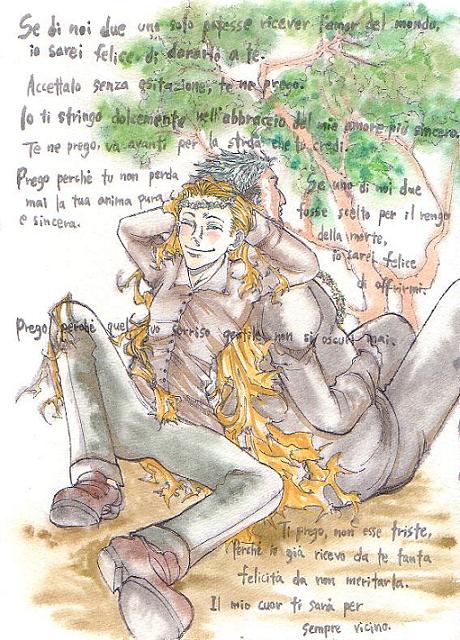 Se di noi due uno solo potesse ricever l'amor del mondo,
io sarei felice di donarlo a te.
Accettalo senza esitazione, te ne prego.
Io ti stringo dolcemente nell'abbraccio del mio amore più sincero.
Te ne prego, va avanti per la strada che tu credi.
Prego perchè tu non perda
mai la tua anima pura
e sincera.
Se uno di noi due
fosse scelto per il regno
della morte,
io sarei felice
di offrirmi.
Prego perchè quel tuo sorriso gentile non si oscuri mai.
Ti prego, non esse triste,
perchè io già ricevo da te tanta
felicità da non meritarla.
Il mio cuor ti sarà per
sempre vicino.